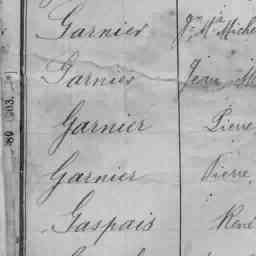 Garnier Jn Mie Miche
Garnier Jean M
Garnier Pierre
Garnier Pierre
Gaspais René